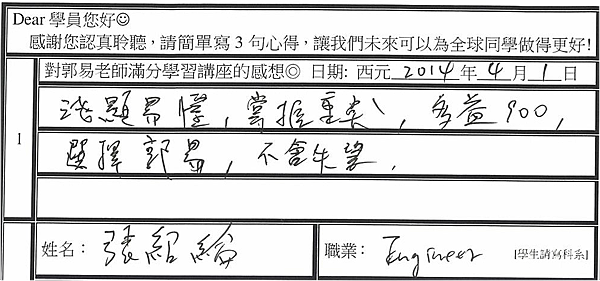 Dear 學員您好☺
感謝您認真聆聽，請簡單寫 3 句心得，讓我們未來可以為全球同學做得更好!
對郭易老師滿分學習講座的感想◎ 日期: 西元 2014 年 4 月 1 日
1
淺顯易懂，掌握重點，多益900，
選擇郭易，不會失望．
姓名： 張紹綸 職業： Engineer [學生請寫科系]